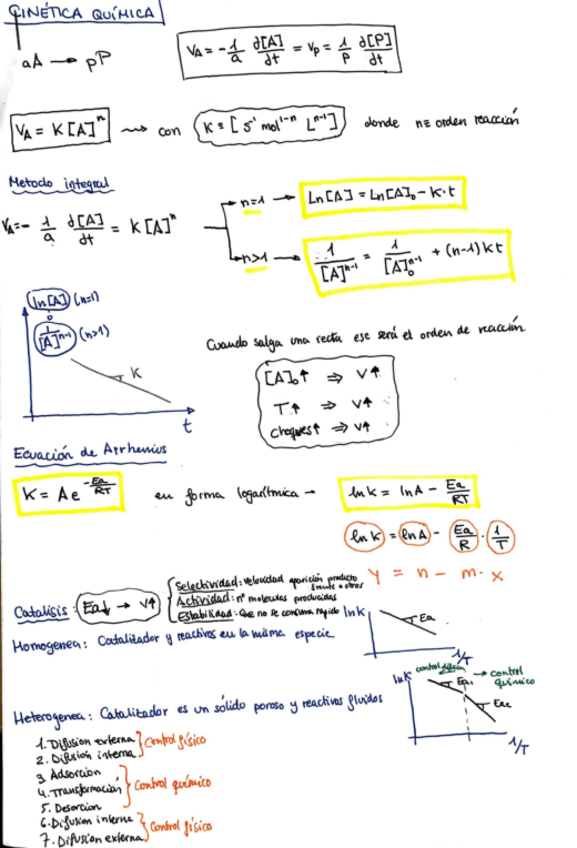 CINÉTICA QUÍMICA
aA → pP
V_A = -1/a d[A]/dt = V_P = 1/P d[P]/dt
V_A = K[A]^n ⇝ con K = [s^-1 mol^1-n L^n-1] donde n≡ orden reacción
Metodo integral
V_A = - 1/a d[A]/dt = K[A]^n
n=1 → Ln[A] = Ln[A]_0 - K·t
n>1 → 1/[A]^n-1 = 1/[A]_0^n-1 + (n-1)Kt
ln[A] (n=1)
o
1/[A]^n-1 (n>1)
K
t
Cuando salga una recta ese será el orden de reacción
[A]_0↑ ⇒ V↑
T↑ ⇒ V↑
choques↑ ⇒ V↑
Ecuación de Arrhenius
K = A e^-Ea/RT en forma logarítmica → ln K = ln A - Ea/RT
ln K = ln A - Ea/R · 1/T
Y = n - m · x
Catalisis: Ea↓ → V↑
Selectividad: velocidad aparición producto frente a otros
Actividad: nº moleculas producidas
Estabilidad: Que no se consuma rapido
ln K
Ea
1/T
Homogenea: Catalizador y reactivos en la misma especie
ln K
control físico
→ control químico
Ea1
Ea2
1/T
Heterogenea: Catalizador es un sólido poroso y reactivos fluidos
1. Difusion externa
2. Difusión interna
Control físico
3. Adsorcion
4. Transformación
5. Desorcion
Control químico
6. Difusion interna
7. Difusion externa
Control físico